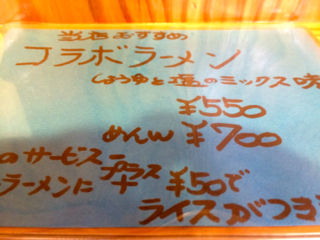 当店おすすめ
コラボラーメン
しょうゆと塩のミックス味
¥550
めんW ¥700
のサービス プラス
ラーメンに + ¥50で
ライスがつき